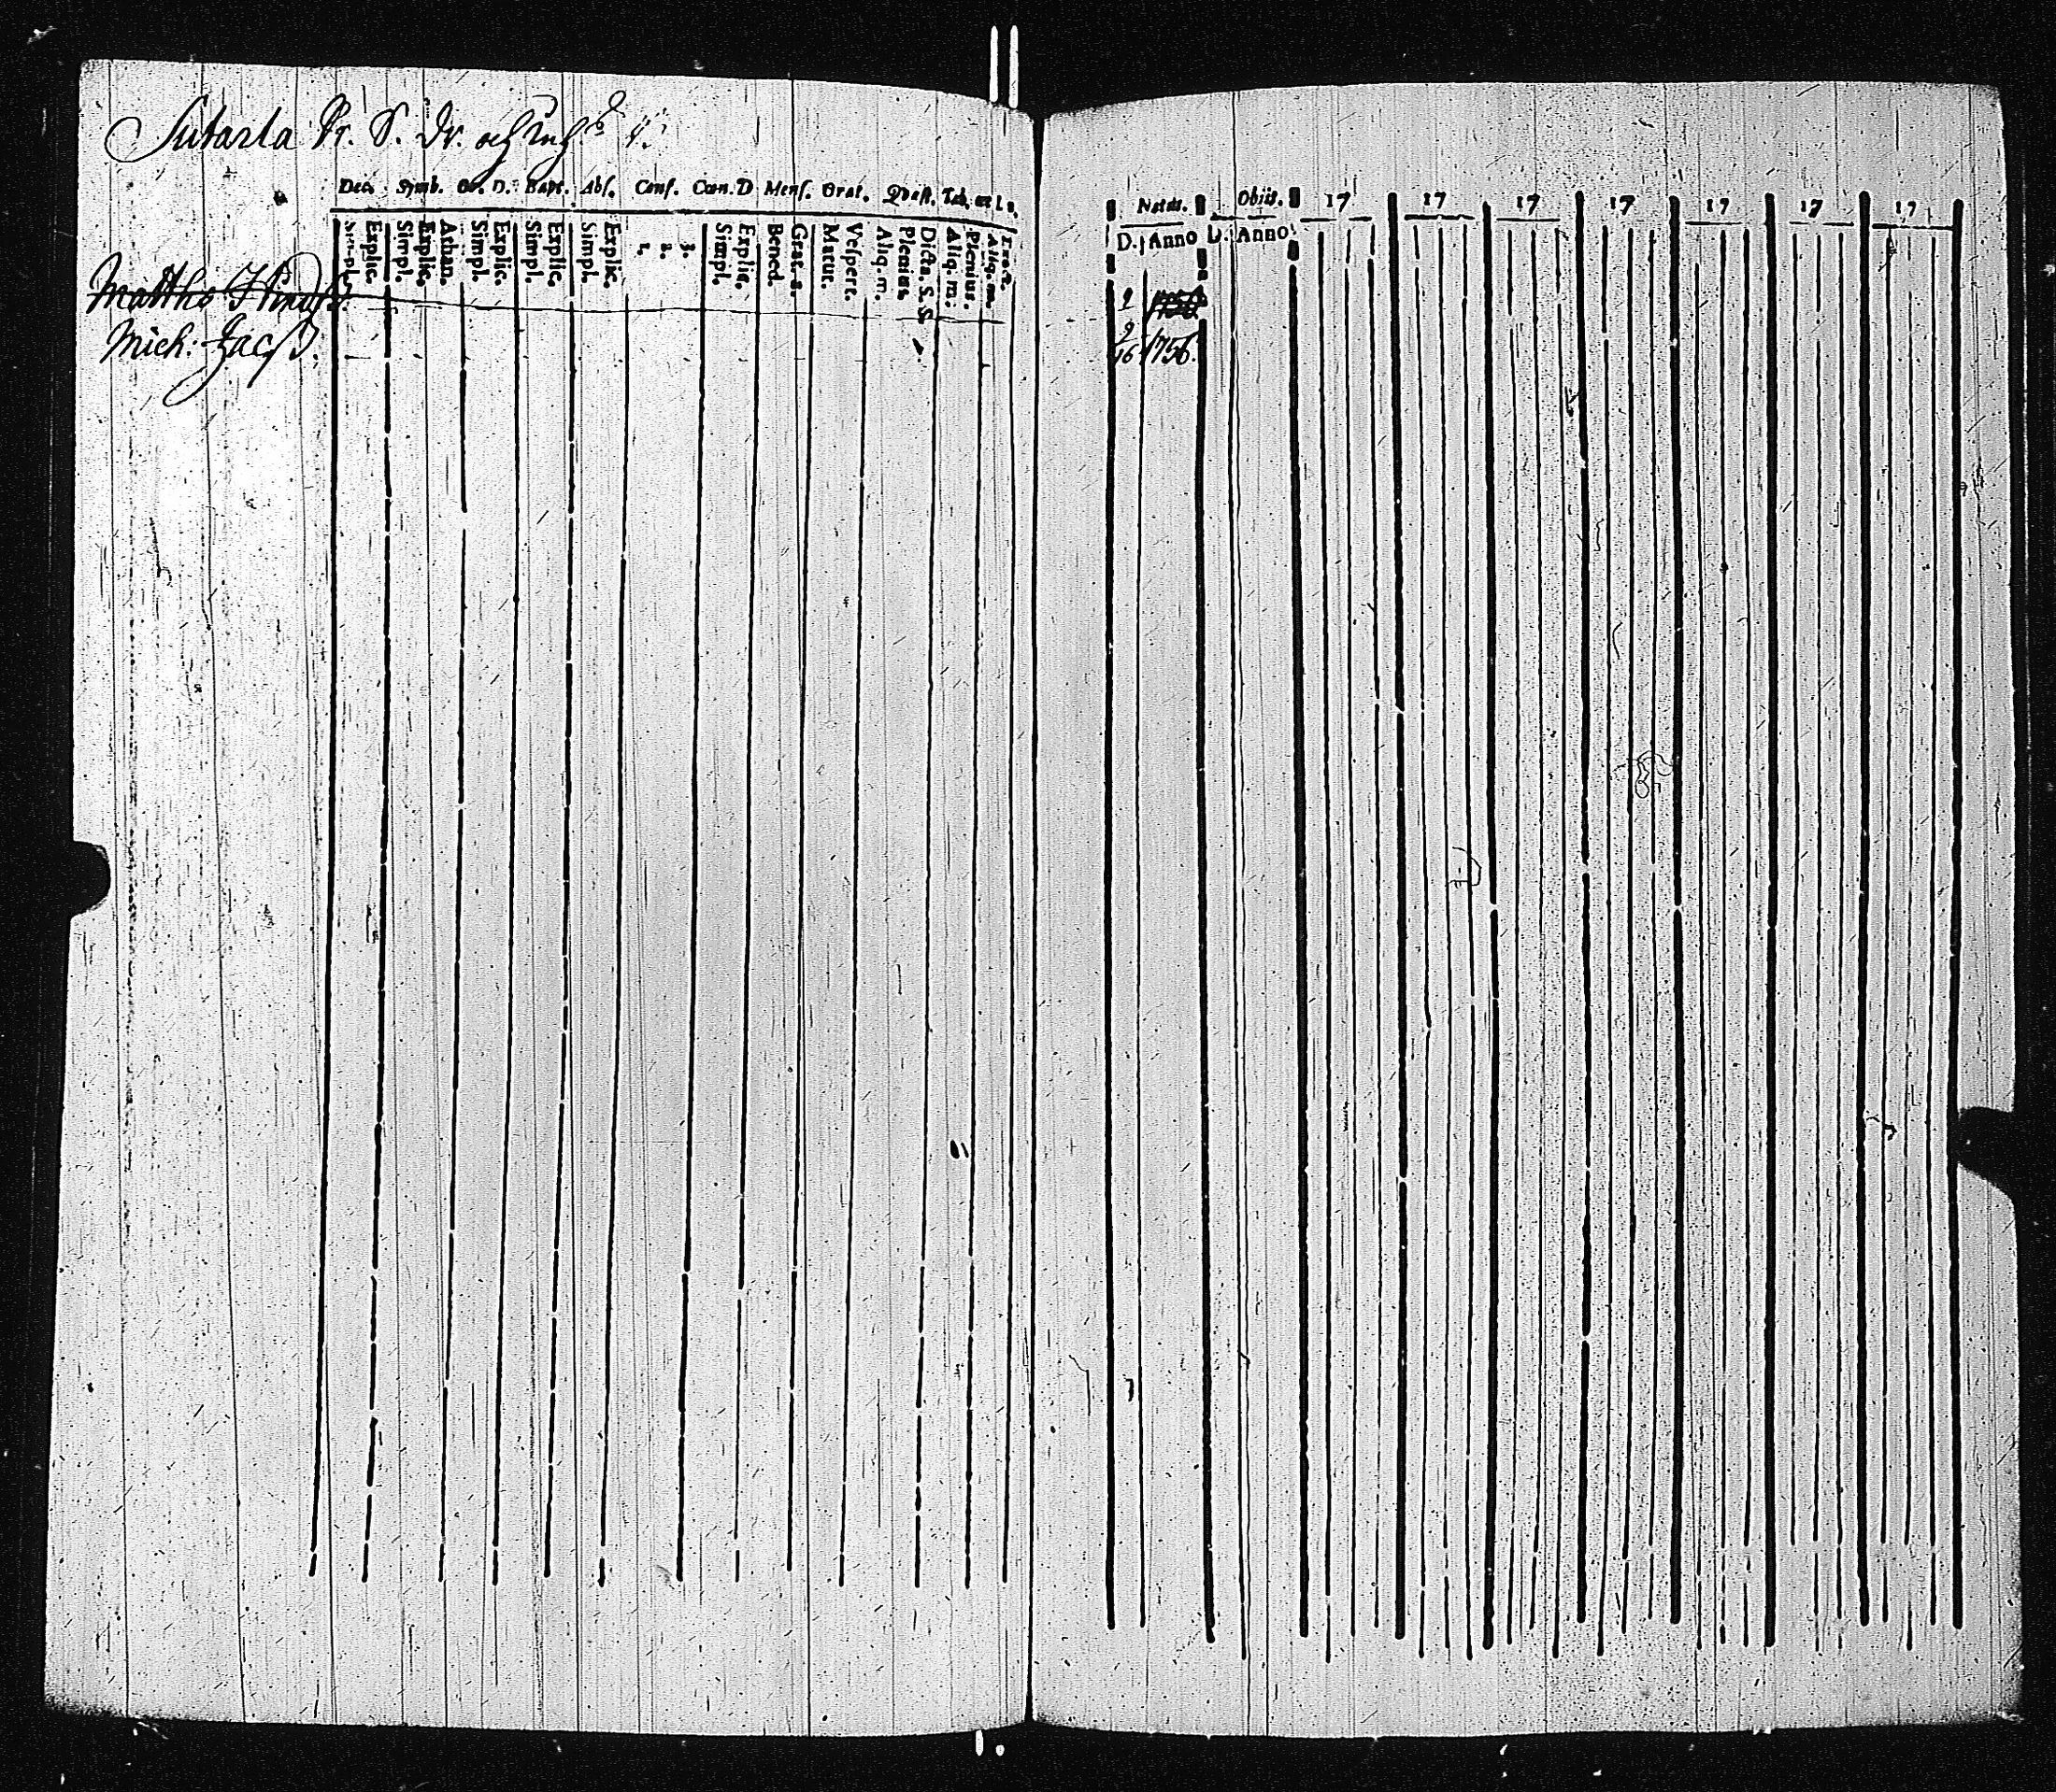 Sutarla Dr. S. Dr.
Dec. Symb. Or. D. Bapt. Abs. Conf. Cœn. D Mens. Orat. Quæst. Tab. œc
Simpl. Explic. Simpl. Explic. Athan. Simpl. Explic. Simpl. Explic. Simpl. Explic. 1. 2. 3. Simpl. Explic. Bened. Grat. a. Matut. Vespert. Aliq. m. Plenius. Dicta. S. S. Aliq. m. Plenius. Aliq. m.
Matths
Mich:
Natus. Obiit. 17 17 17 17 17 17 17
D. Anno D. Anno
9 1756
9/16 1756.